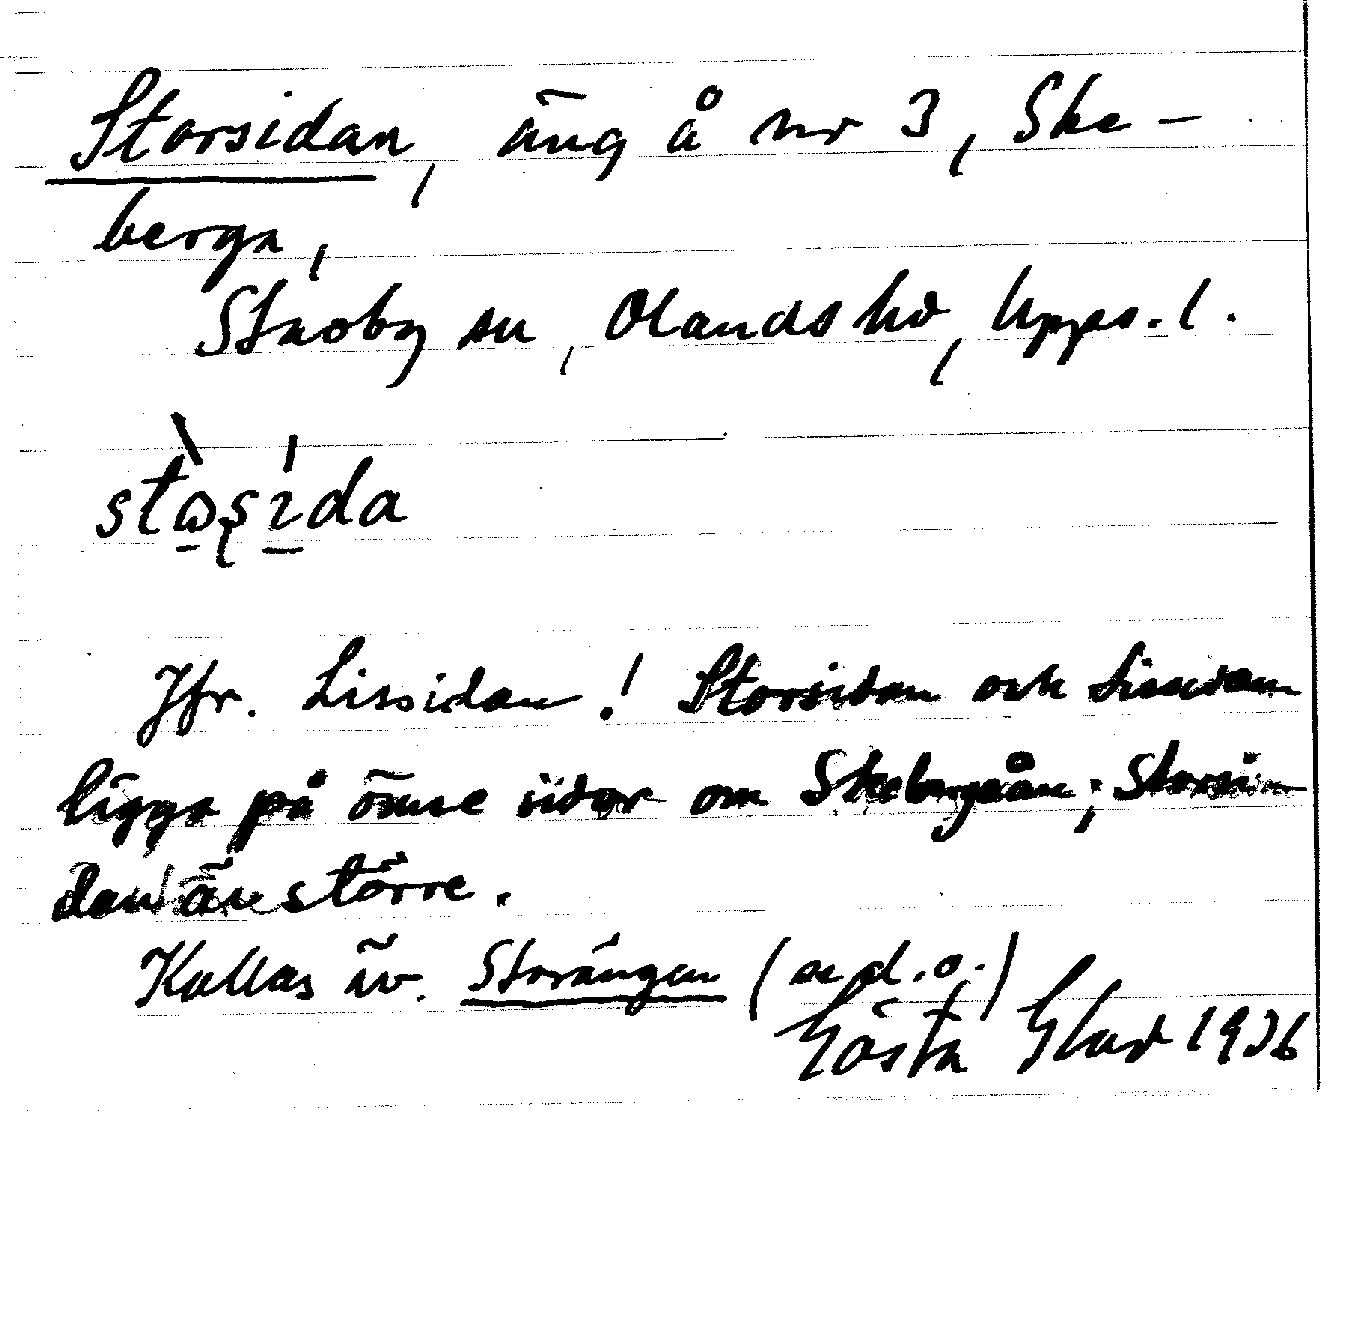 Storsidan, äng å nr 3, Ske-
berga,
Skäoby sn, Olands hd, Upps. l.
stɷ̀ʂıda
Jfr. Lissidan! Storsidan och Lissidan
ligga på ömse sidor om Skebergaån; Storsi-
dan är större.
Kallas äv. Storängen (se d.o.)
Gösta Glad 1936